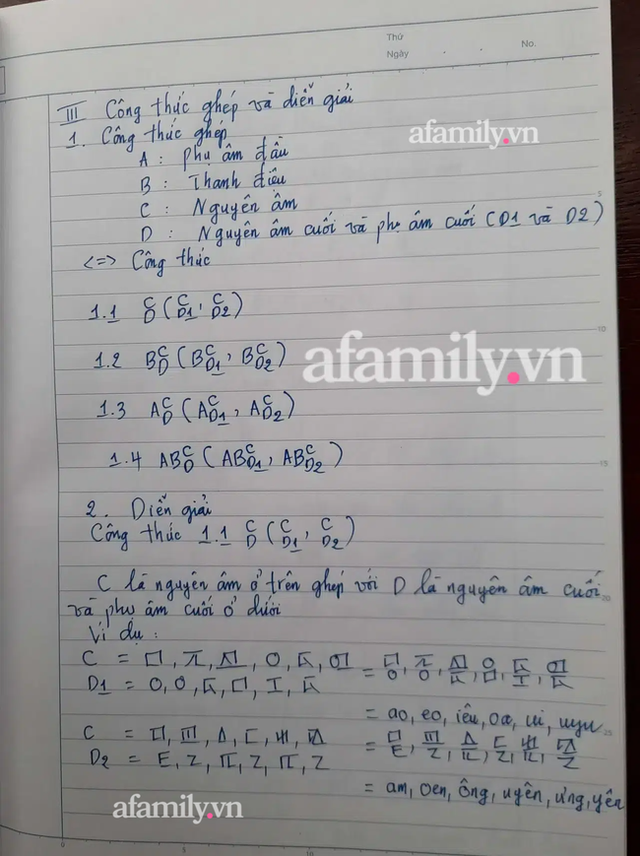 Thứ
Ngày . . No.
III Công thức ghép và diễn giải
1. Công thức ghép
afamily.vn
A : Phụ âm đầu
B : Thanh điệu
C : Nguyên âm
D : Nguyên âm cuối và phụ âm cuối (D1 và D2)
<=> Công thức
1.1 C D (C D1, C D2)
1.2 B C D (B C D1, B C D2)
afamily.vn
1.3 A C D (A C D1, A C D2)
1.4 AB C D (AB C D1, AB C D2)
2. Diễn giải
Công thức 1.1 C D (C D1, C D2)
C là nguyên âm ở trên ghép với D là nguyên âm cuối
và phụ âm cuối ở dưới
Ví dụ :
C =
D1 =
= ao, eo, iêu, oa, ui, uyu
C =
D2 =
= am, oen, ông, uyên, ưng, yên
afamily.vn
5
10
15
20
25
0
5
10